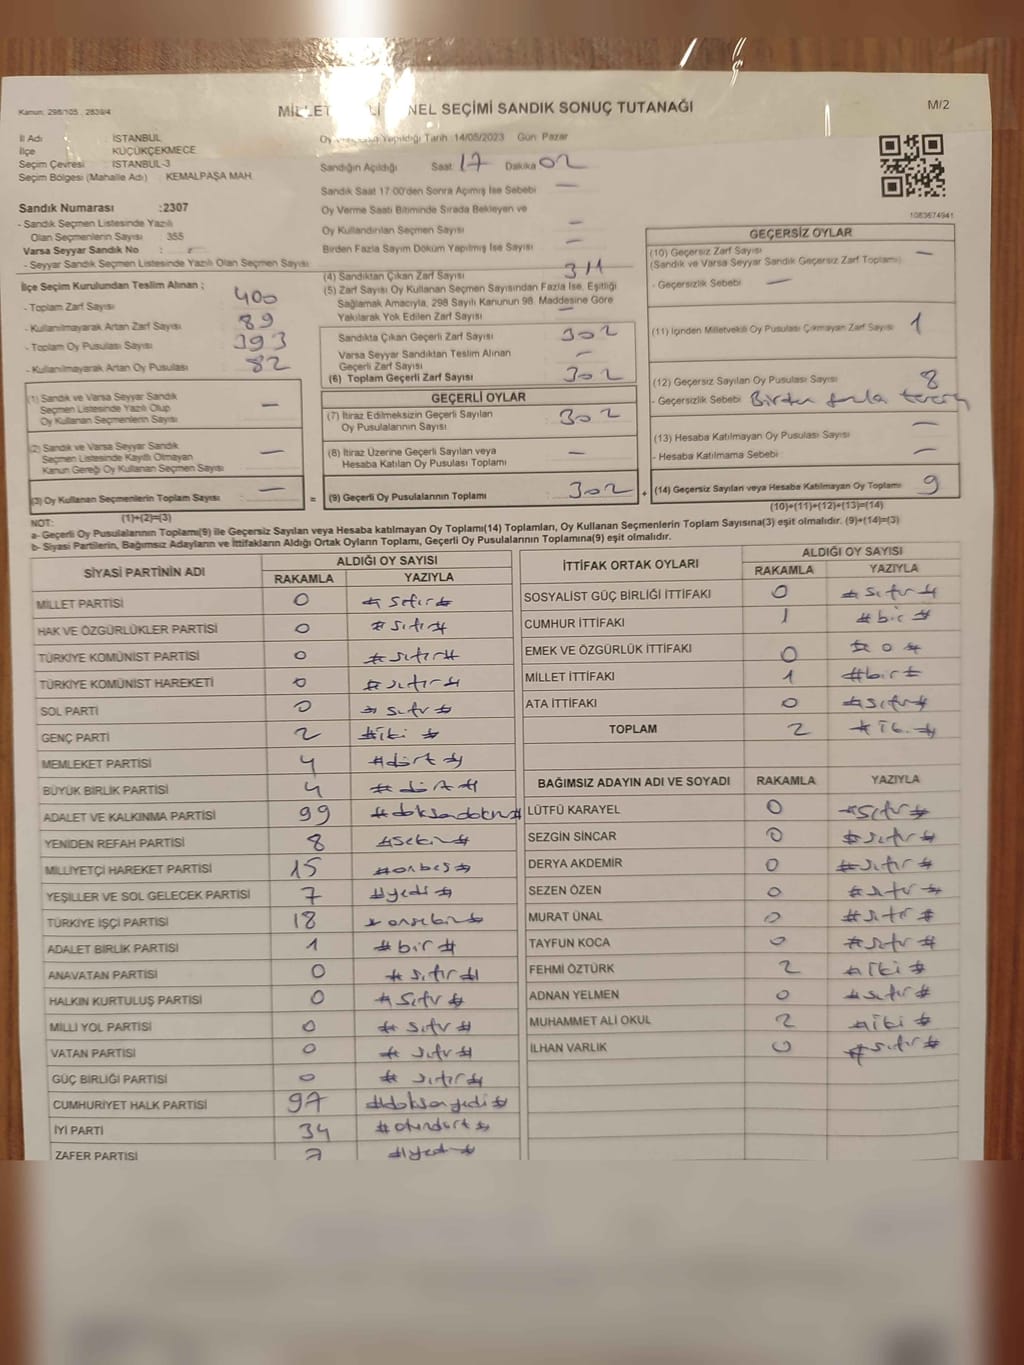 Kanun: 298/105 , 2839/4
MİLLET NEL SEÇİMİ SANDIK SONUÇ TUTANAĞI
M/2
İl Adı : İSTANBUL
İlçe : KÜÇÜKÇEKMECE
Seçim Çevresi : İSTANBUL-3
Seçim Bölgesi (Mahalle Adı) : KEMALPAŞA MAH.
Sandık Numarası :2307
- Sandık Seçmen Listesinde Yazılı
Olan Seçmenlerin Sayısı : 355
Varsa Seyyar Sandık No :
- Seyyar Sandık Seçmen Listesinde Yazılı Olan Seçmen Sayısı
İlçe Seçim Kurulundan Teslim Alınan ;
- Toplam Zarf Sayısı 400
- Kullanılmayarak Artan Zarf Sayısı 89
- Toplam Oy Pusulası Sayısı 393
- Kullanılmayarak Artan Oy Pusulası 82
(1) Sandık ve Varsa Seyyar Sandık
Seçmen Listesinde Yazılı Olup
Oy Kullanan Seçmenlerin Sayısı —
(2) Sandık ve Varsa Seyyar Sandık
Seçmen Listesinde Kayıtlı Olmayan
Kanun Gereği Oy Kullanan Seçmen Sayısı —
(3) Oy Kullanan Seçmenlerin Toplam Sayısı —
(1)+(2)=(3)
Oy Yapıldığı Tarih :14/05/2023 Gün: Pazar
Sandığın Açıldığı Saat 17 Dakika 02
Sandık Saat 17:00'den Sonra Açımış İse Sebebi —
Oy Verme Saati Bitiminde Sırada Bekleyen ve
Oy Kullandırılan Seçmen Sayısı —
Birden Fazla Sayım Döküm Yapılmış İse Sayısı —
(4) Sandıktan Çıkan Zarf Sayısı 311
(5) Zarf Sayısı Oy Kullanan Seçmen Sayısından Fazla İse, Eşitliği
Sağlamak Amacıyla, 298 Sayılı Kanunun 98. Maddesine Göre
Yakılarak Yok Edilen Zarf Sayısı —
Sandıkta Çıkan Geçerli Zarf Sayısı 302
Varsa Seyyar Sandıktan Teslim Alınan
Geçerli Zarf Sayısı —
(6) Toplam Geçerli Zarf Sayısı 302
GEÇERLİ OYLAR
(7) İtiraz Edilmeksizin Geçerli Sayılan
Oy Pusulalarının Sayısı 302
(8) İtiraz Üzerine Geçerli Sayılan veya
Hesaba Katılan Oy Pusulası Toplamı —
= (9) Geçerli Oy Pusulalarının Toplamı 302 +
1083674941
GEÇERSİZ OYLAR
(10) Geçersiz Zarf Sayısı —
(Sandık ve Varsa Seyyar Sandık Geçersiz Zarf Toplamı)
- Geçersizlik Sebebi —
(11) İçinden Milletvekili Oy Pusulası Çıkmayan Zarf Sayısı 1
(12) Geçersiz Sayılan Oy Pusulası Sayısı 8
- Geçersizlik Sebebi Birden fazla
(13) Hesaba Katılmayan Oy Pusulası Sayısı —
- Hesaba Katılmama Sebebi —
(14) Geçersiz Sayılan veya Hesaba Katılmayan Oy Toplamı 9
(10)+(11)+(12)+(13)=(14)
NOT:
a- Geçerli Oy Pusulalarının Toplamı(9) ile Geçersiz Sayılan veya Hesaba katılmayan Oy Toplamı(14) Toplamları, Oy Kullanan Seçmenlerin Toplam Sayısına(3) eşit olmalıdır. (9)+(14)=(3)
b- Siyasi Partilerin, Bağımsız Adayların ve İttifakların Aldığı Ortak Oyların Toplamı, Geçerli Oy Pusulalarının Toplamına(9) eşit olmalıdır.
SİYASİ PARTİNİN ADI ALDIĞI OY SAYISI
RAKAMLA YAZIYLA
MİLLET PARTİSİ 0 # sıfır #
HAK VE ÖZGÜRLÜKLER PARTİSİ 0 # sıfır #
TÜRKİYE KOMÜNİST PARTİSİ 0 # sıfır #
TÜRKİYE KOMÜNİST HAREKETİ 0 # sıfır #
SOL PARTİ 0 # sıfır #
GENÇ PARTİ 2 # iki #
MEMLEKET PARTİSİ 4 # dört #
BÜYÜK BİRLİK PARTİSİ 4 # dört #
ADALET VE KALKINMA PARTİSİ 99 # doksandokuz #
YENİDEN REFAH PARTİSİ 8 # sekiz #
MİLLİYETÇİ HAREKET PARTİSİ 15 # onbeş #
YEŞİLLER VE SOL GELECEK PARTİSİ 7 # yedi #
TÜRKİYE İŞÇİ PARTİSİ 18 # onsekiz #
ADALET BİRLİK PARTİSİ 1 # bir #
ANAVATAN PARTİSİ 0 # sıfır #
HALKIN KURTULUŞ PARTİSİ 0 # sıfır #
MİLLİ YOL PARTİSİ 0 # sıfır #
VATAN PARTİSİ 0 # sıfır #
GÜÇ BİRLİĞİ PARTİSİ 0 # sıfır #
CUMHURİYET HALK PARTİSİ 97 # doksanyedi #
İYİ PARTİ 34 # otuzdört #
ZAFER PARTİSİ 7 # yedi #
İTTİFAK ORTAK OYLARI ALDIĞI OY SAYISI
RAKAMLA YAZIYLA
SOSYALİST GÜÇ BİRLİĞİ İTTİFAKI 0 # sıfır #
CUMHUR İTTİFAKI 1 # bir #
EMEK VE ÖZGÜRLÜK İTTİFAKI 0 # 0 #
MİLLET İTTİFAKI 1 # bir #
ATA İTTİFAKI 0 # sıfır #
TOPLAM 2 # iki #
BAĞIMSIZ ADAYIN ADI VE SOYADI RAKAMLA YAZIYLA
LÜTFÜ KARAYEL 0 # sıfır #
SEZGİN SİNCAR 0 # sıfır #
DERYA AKDEMİR 0 # sıfır #
SEZEN ÖZEN 0 # sıfır #
MURAT ÜNAL 0 # sıfır #
TAYFUN KOCA 0 # sıfır #
FEHMİ ÖZTÜRK 2 # iki #
ADNAN YELMEN 0 # sıfır #
MUHAMMET ALİ OKUL 2 # iki #
İLHAN VARLIK 0 # sıfır #